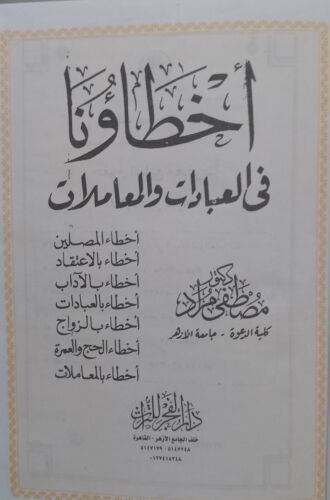 أخطاؤنا
في العبادات والمعاملات
أخطاء المصلين
أخطاء بالاعتقاد
أخطاء بالآداب
أخطاء بالعبادات
أخطاء بالزواج
أخطاء الحج والعمرة
أخطاء بالمعاملات
دكتور
مصطفى مراد
كلية الدعوة - جامعة الأزهر
دار الفجر للتراث
خلف الجامع الأزهر - القاهرة